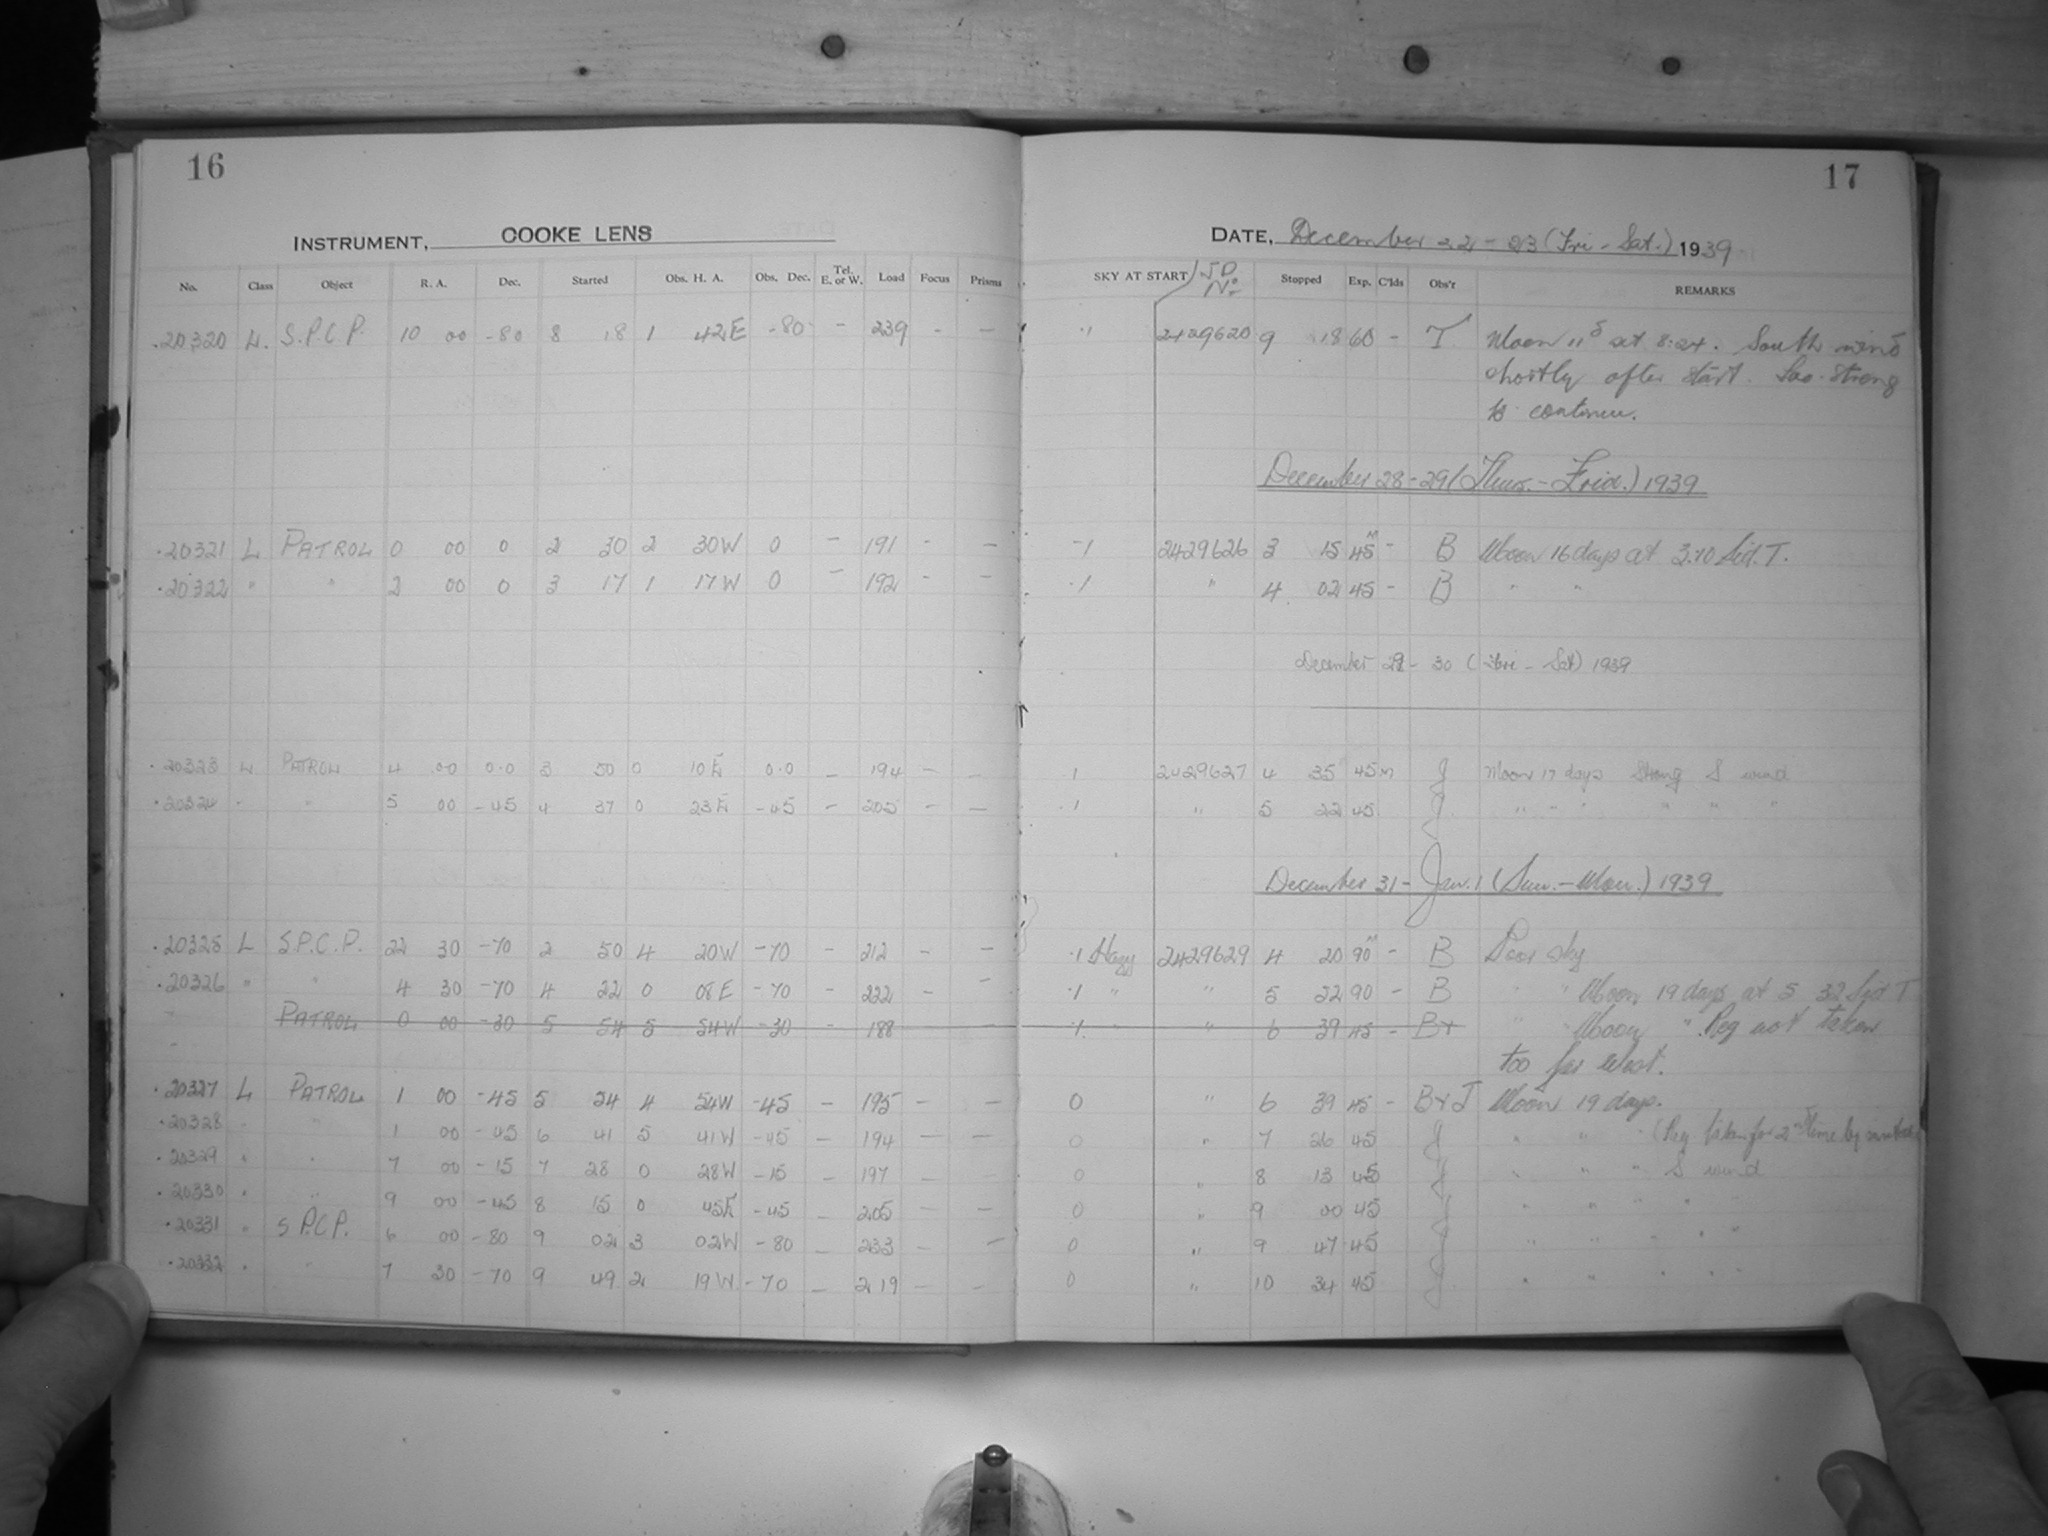 16
INSTRUMENT, COOKE LENS
No. Class Object R. A. Dec. Started Obs. H. A. Obs. Dec. Tel. E. or W. Load Focus Prisms
.20320 L. S.P.C.P. 10 00 -80 8 18 1 42E -80 - 239 - -
.20321 L PATROL 0 00 0 2 30 2 30W 0 - 191 - -
.20322 " " 2 00 0 3 17 1 17W 0 - 192 - -
.20323 L PATROL 4 00 0.0 3 50 0 10E 0.0 - 194 - -
.20324 " " 5 00 -45 4 37 0 23E -45 - 205 - -
.20325 L S.P.C.P. 22 30 -70 2 50 4 20W -70 - 212 - -
.20326 " " 4 30 -70 4 22 0 08E -70 - 222 - -
" PATROL 0 00 -30 5 54 5 54W -30 - 188 -
.20327 L PATROL 1 00 -45 5 54 4 54W -45 - 195 - -
.20328 " " 1 00 -45 6 41 5 41W -45 - 194 - -
.20329 " " 7 00 -15 7 28 0 28W -15 - 197 - -
.20330 " " 9 00 -45 8 15 0 45E -45 - 205 - -
.20331 " S.P.C.P. 6 00 -80 9 02 3 02W -80 - 233 - -
.20332 " " 7 30 -70 9 49 2 19W -70 - 219 - -
17
DATE, December 22-23 (Fri-Sat.) 1939
SKY AT START JD No. Stopped Exp. C'lds Obs'r REMARKS
.1 2429620 9 18 60 - T Moon 11d set 8:24. South wind
shortly after start. Too strong
to continue.
December 28-29 (Thus.-Frid.) 1939
-1 2429626 3 15 45m - B Moon 16 days at 3.10 Sid. T.
.1 " 4 02 45 - B " "
December 29-30 (Fri-Sat) 1939
.1 2429627 4 35 45m J Moon 17 days Strong S wind
.1 " 5 22 45 J " " " " " "
December 31-Jan. 1 (Sun.-Mon.) 1939
.1 Hazy 2429629 4 20 90m - B Poor sky
.1 " " 5 52 90 - B " " Moon 19 days at 5 32 Sid T
.1 " " 6 39 45 - B+ " Moon " Reg not taken
too far West.
0 " 6 39 45 - B+J Moon 19 days.
0 " 7 26 45 J " " " (Reg taken for 2nd time by mistake
0 " 8 13 45 J " " " S wind
0 " 9 00 45 J " " " " "
0 " 9 47 45 J " " " " "
0 " 10 34 45 J " " " " "